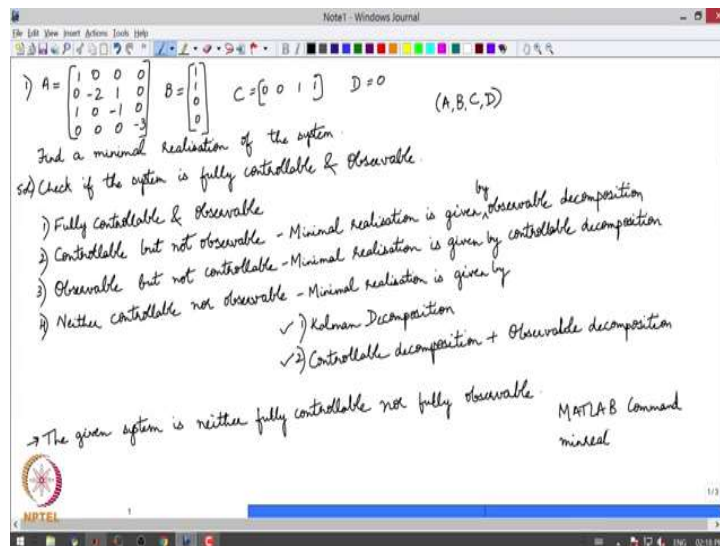 Note1 - Windows Journal
File Edit View Insert Actions Tools Help
1) A = [1 0 0 0 B = [1 C = [0 0 1 1] D = 0
0 -2 1 0 1
1 0 -1 0 0
0 0 0 -3] 0] (A,B,C,D)
Find a minimal realisation of the system.
Sol) Check if the system is fully controllable & Observable.
1) Fully controllable & Observable
2) Controllable but not observable - Minimal realisation is given by observable decomposition
3) Observable but not controllable - Minimal realisation is given by controllable decomposition
4) Neither controllable nor observable - Minimal realisation is given by
✓ 1) Kalman Decomposition
✓ 2) Controllable decomposition + Observable decomposition
→ The given system is neither fully controllable nor fully observable.
MATLAB Command
minreal
NPTEL
1
1/3
ENG 02:18 PM